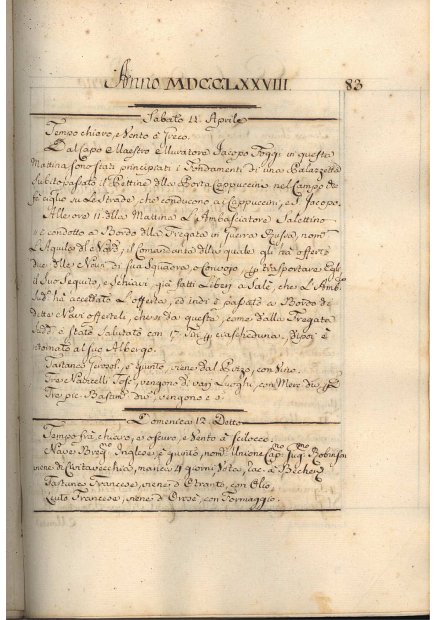 Anno MDCCLXXVIII. 83
Sabato 11 Aprile
Tempo chiaro, e Vento a Greco.
Dal Capo Maestro Muratore Jacopo Foggi in questa
Mattina sono stati principiati i Fondamenti di una Palazzetta
Subito passato il Pettine della Porta Cappuccini nel Campo de
su le Strade, che conducono ai Cappuccini, e S. Jacopo.
All'ore 11 della Mattina L'Ambasciatore Salettino
è condotto a Bordo della Fregata in Guerra Russa, nom.
L'Aquila del Nord, il Comandante della quale gli ha offerto
due delle Navi di sua Squadra, o Convojo trasportare Egli,
il Suo Seguito, e Schiavi già fatti Liberi a Salè, che L'Amb.
Sud. ha accettato L'offerta, ed indi è passato a Bordo de
dette Navi offerteli, che sì da queste, come dalla Fregata
Sudd. è stato Salutato con 17 Tiri ciascheduna, dipoi è
ritornato al suo Albergo.
Tartana è giunto, viene dal con Vino.
Tre Navicelli Tosc. vengono di varj Luoghi, con Merc. div.
Tre pic. Bastim. div. vengono
Domenica 12 Detto
Tempo frà chiaro, e oscuro, e Vento a Scilocco.
Nave Inglese, è giunto, nom. Unione Cap. Robinson
viene di Civitavecchia, manca 4 giorni, Vota, rac. a
Tartana Francese, viene d'Otranto, con Olio,
Liuto Francese, viene d'Orosei, con Formaggio.